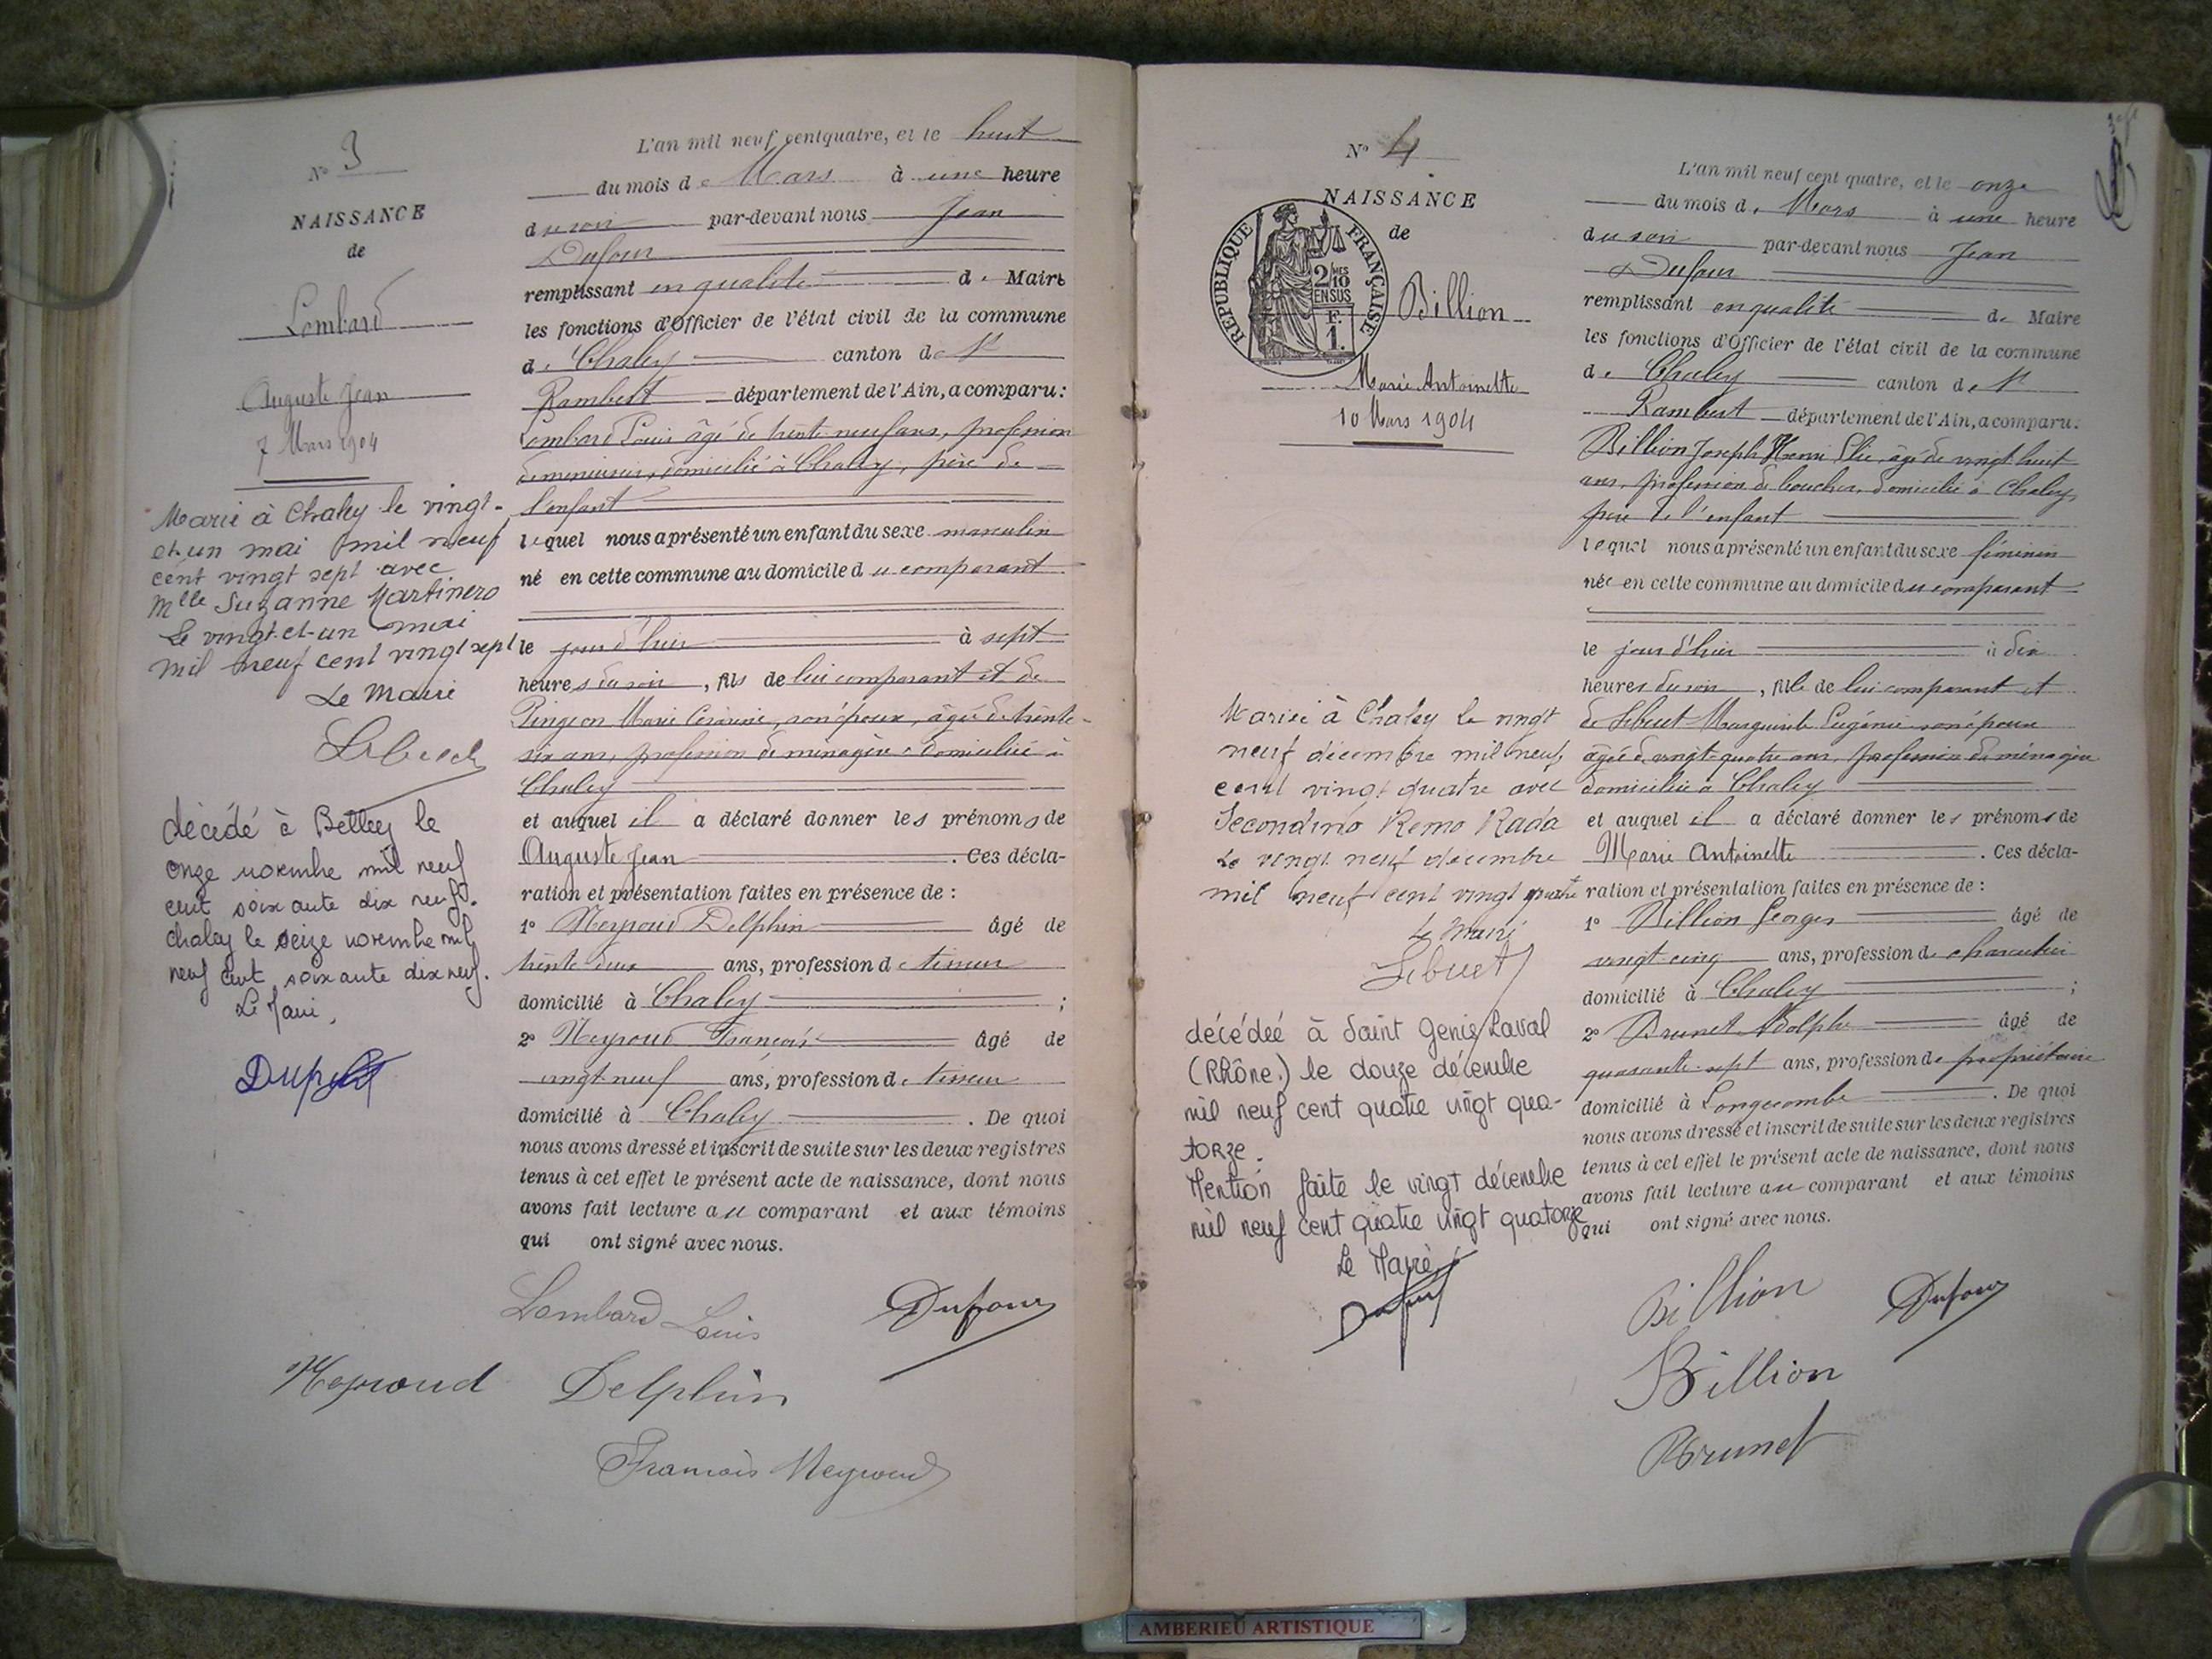 N° 3
NAISSANCE
de
Lombard
Auguste Jean
7 Mars 1904
Marié à Chaley le vingt-
et un mai mil neuf
cent vingt sept avec
Mlle Suzanne Martinero
Le vingt-et-un mai
mil neuf cent vingt sept
Le Maire
décédé à Belley le
onze novembre mil neuf
cent soixante dix neuf.
Chaley le seize novembre mil
neuf cent soixante dix neuf.
Le Maire,
L'an mil neuf cent quatre, et le huit
du mois de Mars à une heure
du soir par-devant nous Jean
Dufour
remplissant en qualité de Maire
les fonctions d'Officier de l'état civil de la commune
de Chaley canton de St
Rambert département de l'Ain, a comparu:
Lombard Louis âgé de trente neuf ans, profession
de menuisier, domicilié à Chaley, père de
l'enfant
lequel nous a présenté un enfant du sexe masculin
né en cette commune au domicile du comparant
le jour d'hier à sept
heures du soir, fils de lui comparant et de
Pingeon Marie Césarine, son épouse, âgée de trente-
six ans, profession de ménagère, domiciliée à
Chaley
et auquel il a déclaré donner les prénoms de
Auguste Jean. Ces décla-
ration et présentation faites en présence de :
1° Neyroud Delphin âgé de
trente deux ans, profession de tisseur
domicilié à Chaley ;
2° Neyroud François âgé de
vingt neuf ans, profession de tisseur
domicilié à Chaley. De quoi
nous avons dressé et inscrit de suite sur les deux registres
tenus à cet effet le présent acte de naissance, dont nous
avons fait lecture au comparant et aux témoins
qui ont signé avec nous.
Lombard Louis Dufour
Neyroud Delphin
François Neyroud
N° 4
NAISSANCE
de
REPUBLIQUE FRANÇAISE
2/MES 10
EN SUS
F.
1.
Billion
Marie Antoinette
10 Mars 1904
Mariée à Chaley le vingt
neuf décembre mil neuf
cent vingt quatre avec
Secondino Remo Rada
Le vingt neuf décembre
mil neuf cent vingt quatre
Le Maire
Lebuet
décédée à Saint Genis Laval
(Rhône.) le douze décembre
mil neuf cent quatre vingt qua-
torze.
Mention faite le vingt décembre
mil neuf cent quatre vingt quatorze
Le Maire
L'an mil neuf cent quatre, et le onze
du mois de Mars à une heure
du soir par-devant nous Jean
Dufour
remplissant en qualité de Maire
les fonctions d'Officier de l'état civil de la commune
de Chaley canton de St
Rambert département de l'Ain, a comparu:
Billion Joseph Henri Elie, âgé de vingt huit
ans, profession de boucher, domicilié à Chaley,
père de l'enfant
lequel nous a présenté un enfant du sexe féminin
née en cette commune au domicile du comparant
le jour d'hier à dix
heures du soir, fille de lui comparant et
de Lebuet Marguerite Eugénie son épouse
âgée de vingt-quatre ans, profession de ménagère
domiciliée à Chaley
et auquel il a déclaré donner les prénoms de
Marie Antoinette. Ces décla-
ration et présentation faites en présence de :
1° Billion Georges âgé de
vingt cinq ans, profession de charcutier
domicilié à Chaley ;
2° Brunet Adolphe âgé de
quarante-sept ans, profession de propriétaire
domicilié à Longecombe. De quoi
nous avons dressé et inscrit de suite sur les deux registres
tenus à cet effet le présent acte de naissance, dont nous
avons fait lecture au comparant et aux témoins
qui ont signé avec nous.
Billion Dufour
Billion
Brunet
AMBERIEU ARTISTIQUE